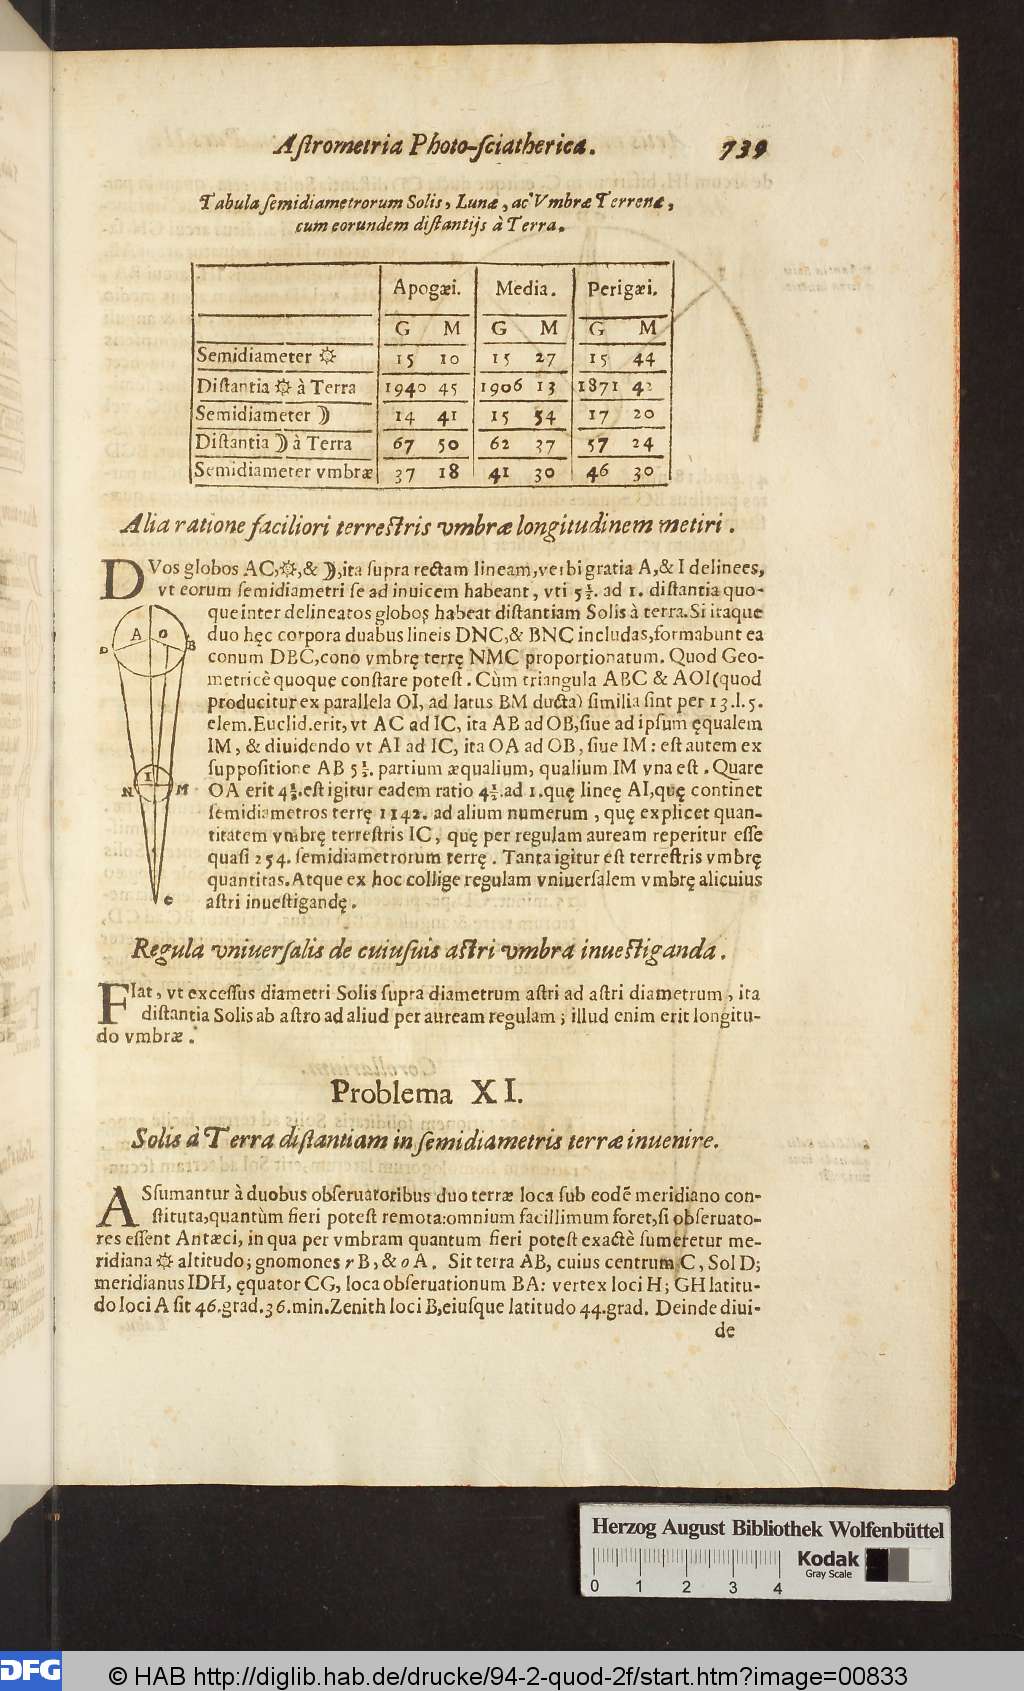 Aſtrometria Photo-ſciatherica. 739
Tabula ſemidiametrorum Solis, Lunæ, ac Vmbræ Terrenæ,
cum eorundem diſtantijs à Terra.
Apogæi. Media. Perigæi.
G M G M G M
Semidiameter ☼ 15 10 15 27 15 44
Diſtantia ☼ à Terra 1940 45 1906 13 1871 42
Semidiameter ☽ 14 41 15 54 17 20
Diſtantia ☽ à Terra 67 50 62 37 57 24
Semidiameter vmbræ 37 18 41 30 46 30
Alia ratione faciliori terreſtris vmbræ longitudinem metiri.
DVos globos AC, ☼, & ☽, ita ſupra rectam lineam, verbi gratia A, & I delinees,
vt eorum ſemidiametri ſe ad inuicem habeant, vti 5½. ad 1. diſtantia quo-
que inter delineatos globos habeat diſtantiam Solis à terra. Si itaque
duo hęc corpora duabus lineis DNC, & BNC includas, formabunt ea
conum DBC, cono vmbrę terrę NMC proportionatum. Quod Geo-
metricè quoque conſtare poteſt. Cùm triangula ABC & AOI (quod
producitur ex parallela OI, ad latus BM ducta) ſimilia ſint per 13.l.5.
elem. Euclid. erit, vt AC ad IC, ita AB ad OB, ſiue ad ipſum ęqualem
IM, & diuidendo vt AI ad IC, ita OA ad OB, ſiue IM: eſt autem ex
ſuppoſitione AB 5½. partium æqualium, qualium IM vna eſt. Quare
OA erit 4½. eſt igitur eadem ratio 4½. ad 1. quę lineę AI, quę continet
ſemidiametros terrę 1142. ad alium numerum, quę explicet quan-
titatem vmbrę terreſtris IC, quę per regulam auream reperitur eſſe
quaſi 254. ſemidiametrorum terrę. Tanta igitur eſt terreſtris vmbrę
quantitas. Atque ex hoc collige regulam vniuerſalem vmbrę alicuius
aſtri inueſtigandę.
A O
D B
I
N M
C
Regula vniuerſalis de cuiuſuis aſtri vmbra inueſtiganda.
FIat, vt exceſſus diametri Solis ſupra diametrum aſtri ad aſtri diametrum, ita
diſtantia Solis ab aſtro ad aliud per auream regulam; illud enim erit longitu-
do vmbræ.
Problema XI.
Solis à Terra diſtantiam in ſemidiametris terræ inuenire.
ASſumantur à duobus obſeruatoribus duo terræ loca ſub eodē meridiano con-
ſtituta, quantùm fieri poteſt remota: omnium facillimum foret, ſi obſeruato-
res eſſent Antæci, in qua per vmbram quantum fieri poteſt exactè ſumeretur me-
ridiana ☼ altitudo; gnomones r B, & o A. Sit terra AB, cuius centrum C, Sol D;
meridianus IDH, ęquator CG, loca obſeruationum BA: vertex loci H; GH latitu-
do loci A ſit 46. grad. 36. min. Zenith loci B, eiuſque latitudo 44. grad. Deinde diui-
de
Herzog August Bibliothek Wolfenbüttel
Kodak
Gray Scale
0 1 2 3 4
DFG © HAB http://diglib.hab.de/drucke/94-2-quod-2f/start.htm?image=00833